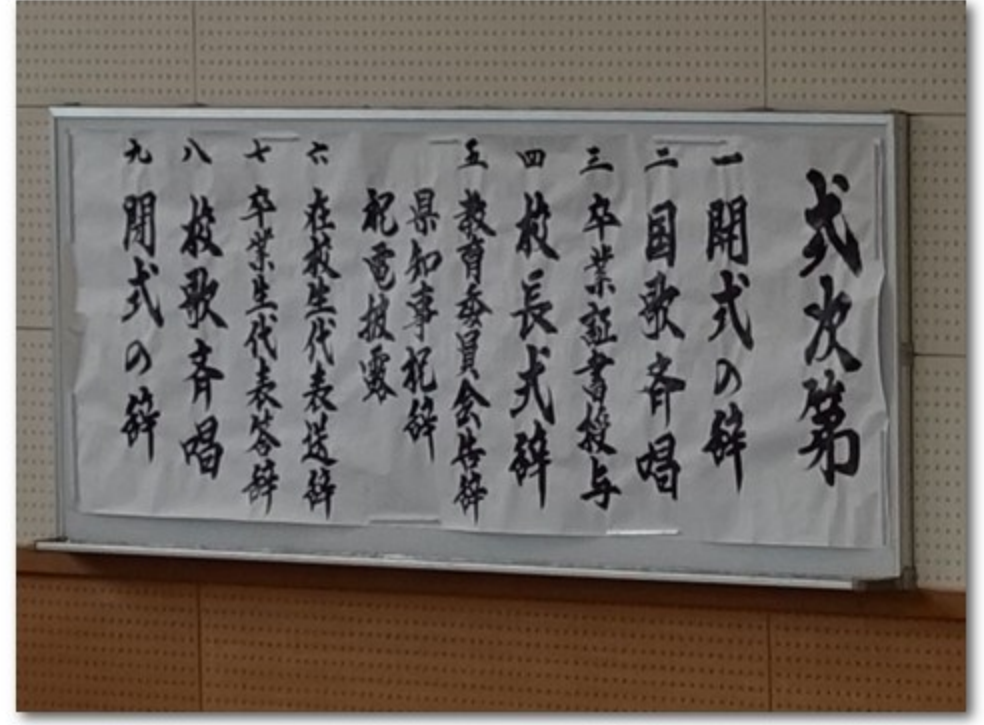 式次第
一 開式の辞
二 国歌斉唱
三 卒業証書授与
四 校長式辞
五 教育委員会告辞
県知事祝辞
祝電披露
六 在校生代表送辞
七 卒業生代表答辞
八 校歌斉唱
九 閉式の辞